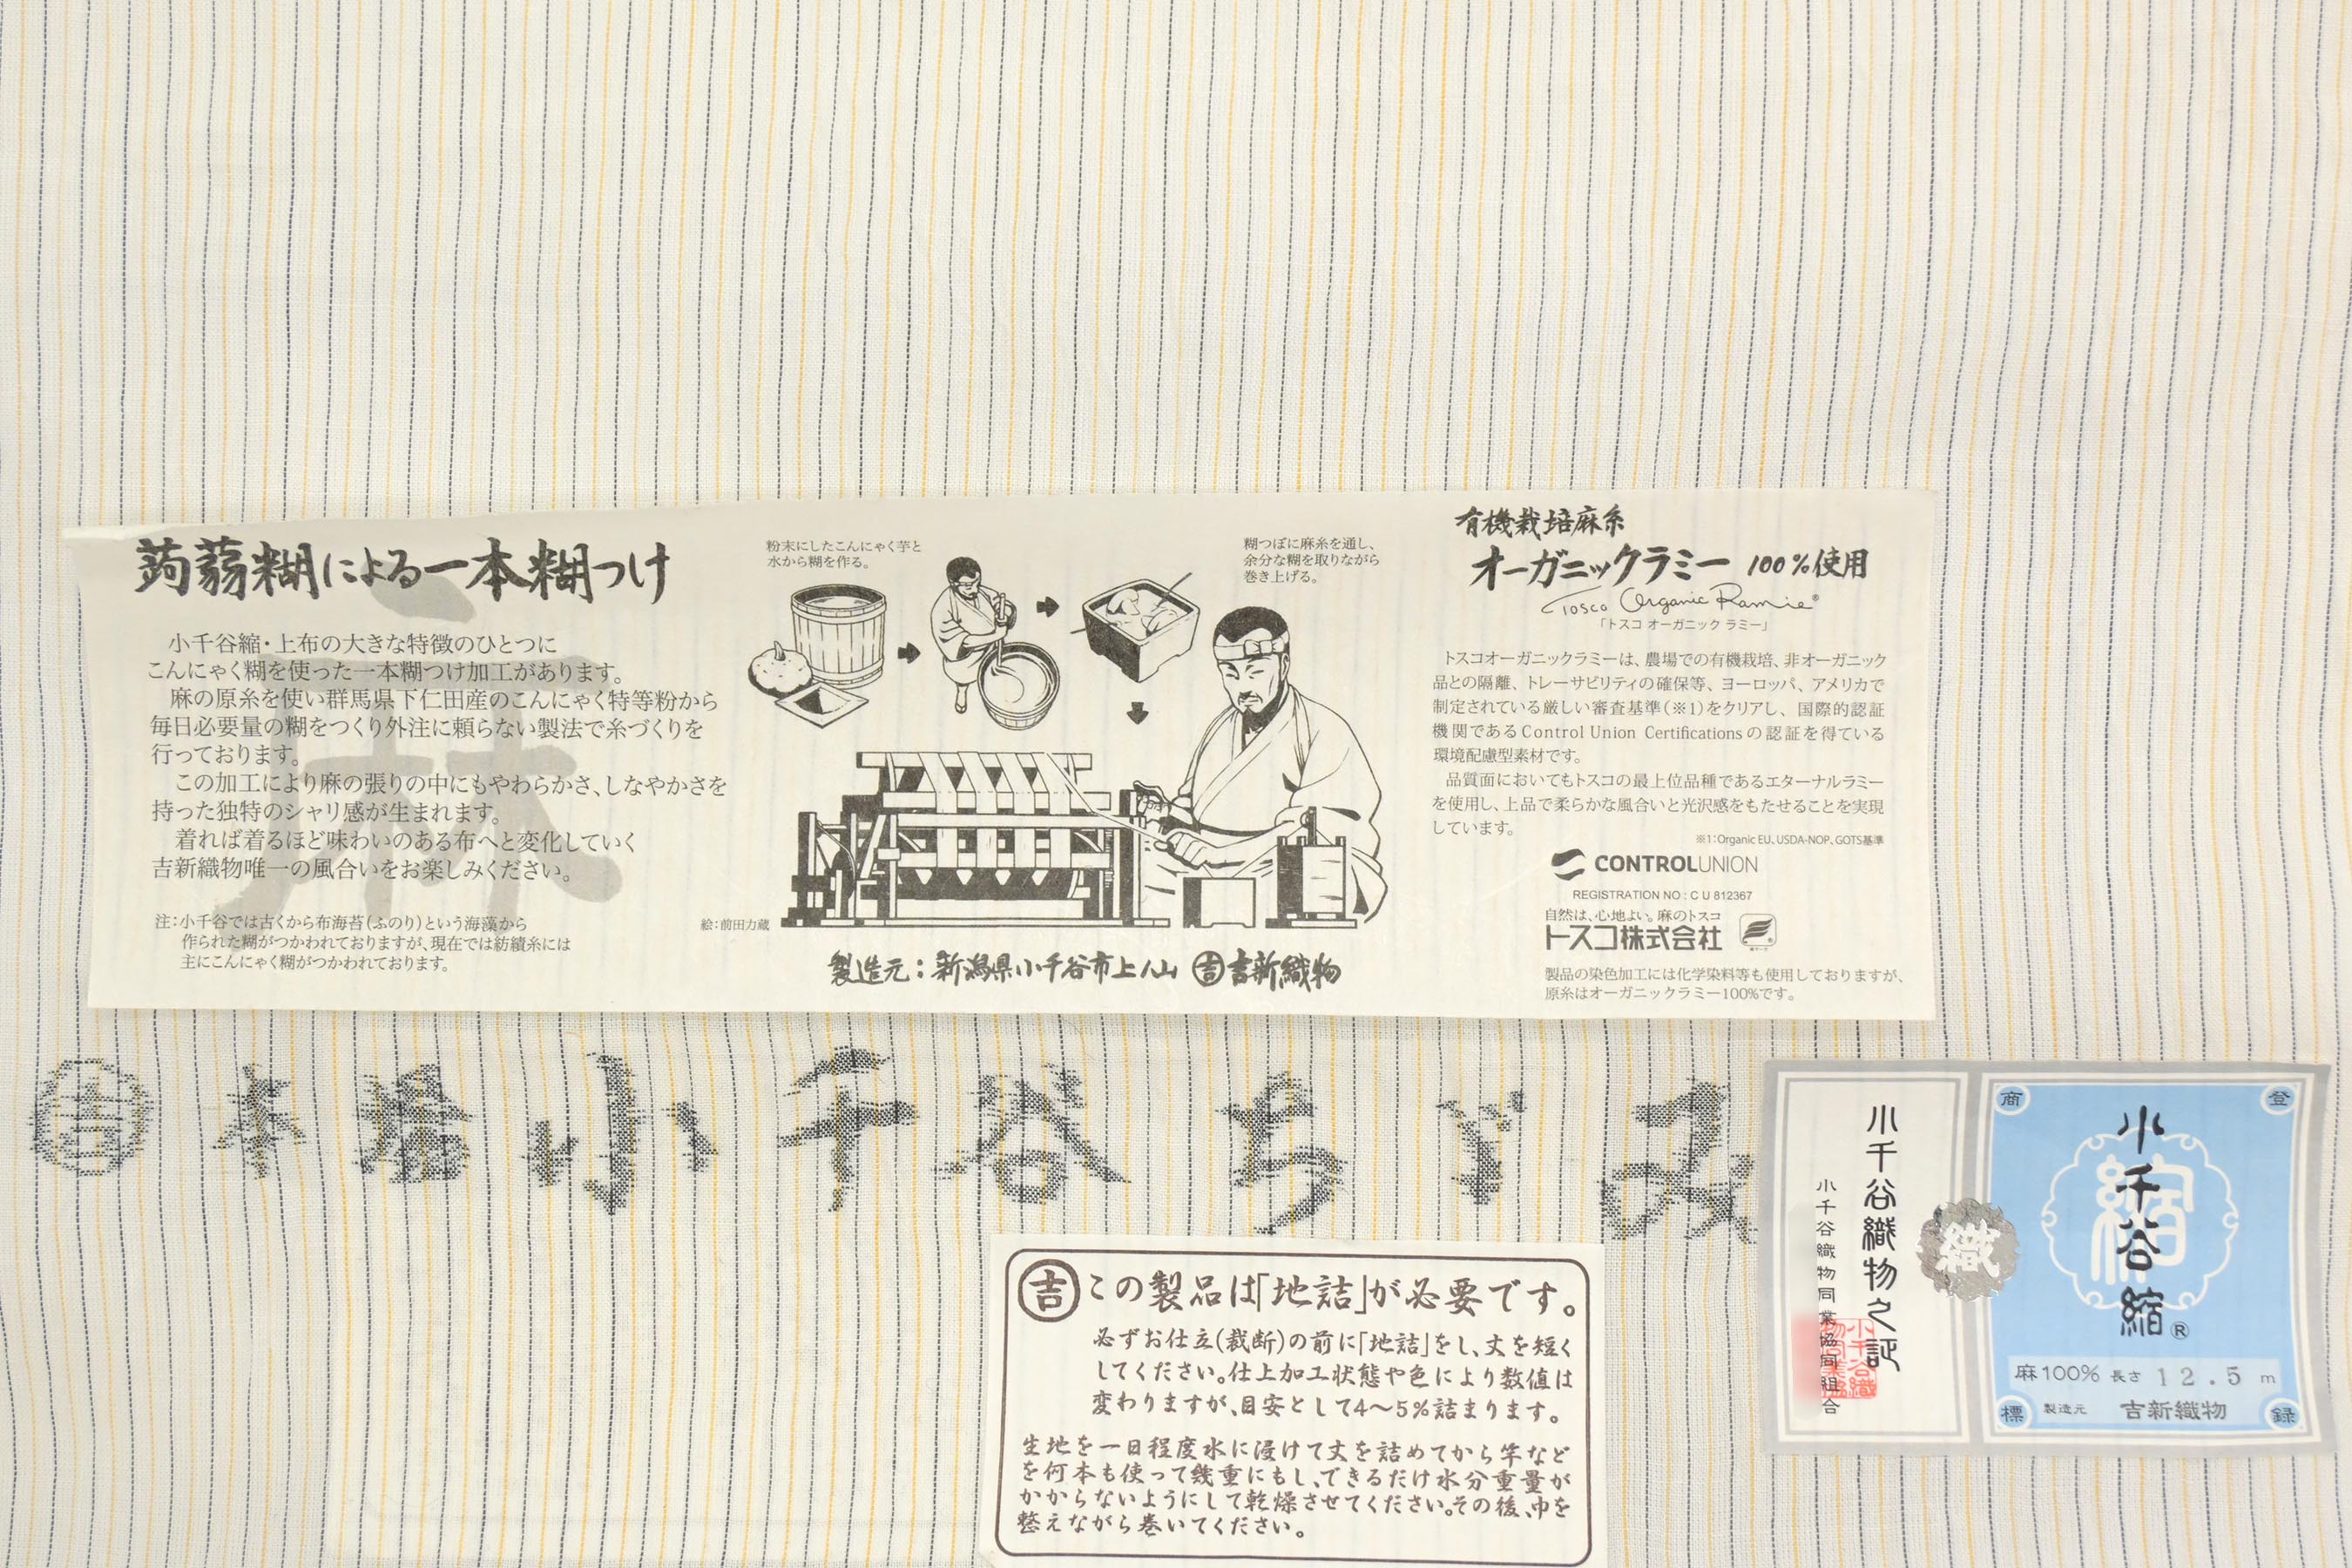 蒟蒻糊による一本糊つけ
小千谷縮・上布の大きな特徴のひとつに
こんにゃく糊を使った一本糊つけ加工があります。
麻の原糸を使い群馬県下仁田産のこんにゃく特等粉から
毎日必要量の糊をつくり外注に頼らない製法で糸づくりを
行っております。
この加工により麻の張りの中にもやわらかさ、しなやかさを
持った独特のシャリ感が生まれます。
着れば着るほど味わいのある布へと変化していく
吉新織物唯一の風合いをお楽しみください。
注:小千谷では古くから布海苔(ふのり)という海藻から
作られた糊がつかわれておりますが、現在では紡績糸には
主にこんにゃく糊がつかわれております。
麻
粉末にしたこんにゃく芋と
水から糊を作る。
糊つぼに麻糸を通し、
余分な糊を取りながら
巻き上げる。
絵:前田力蔵
製造元:新潟県小千谷市上ノ山 吉 吉新織物
有機栽培麻糸
オーガニックラミー 100%使用
Tosco Organic Ramie®
「トスコ オーガニック ラミー」
トスコオーガニックラミーは、農場での有機栽培、非オーガニック
品との隔離、トレーサビリティの確保等、ヨーロッパ、アメリカで
制定されている厳しい審査基準(※1)をクリアし、国際的認証
機関であるControl Union Certificationsの認証を得ている
環境配慮型素材です。
品質面においてもトスコの最上位品種であるエターナルラミー
を使用し、上品で柔らかな風合いと光沢感をもたせることを実現
しています。
※1:Organic EU、USDA-NOP、GOTS基準
CONTROLUNION
REGISTRATION NO : C U 812367
自然は、心地よい。麻のトスコ
トスコ株式会社
製品の染色加工には化学染料等も使用しておりますが、
原糸はオーガニックラミー100%です。
吉 本塩小千谷ちゞみ
吉 この製品は「地詰」が必要です。
必ずお仕立(裁断)の前に「地詰」をし、丈を短く
してください。仕上加工状態や色により数値は
変わりますが、目安として4〜5%詰まります。
生地を一日程度水に浸けて丈を詰めてから竿など
を何本も使って幾重にもし、できるだけ水分重量が
かからないようにして乾燥させてください。その後、巾を
整えながら巻いてください。
小千谷織物之証
小千谷織物同業協同組合
織
登録商標
縮
小千谷縮®
麻100% 長さ 12.5 m
製造元 吉新織物